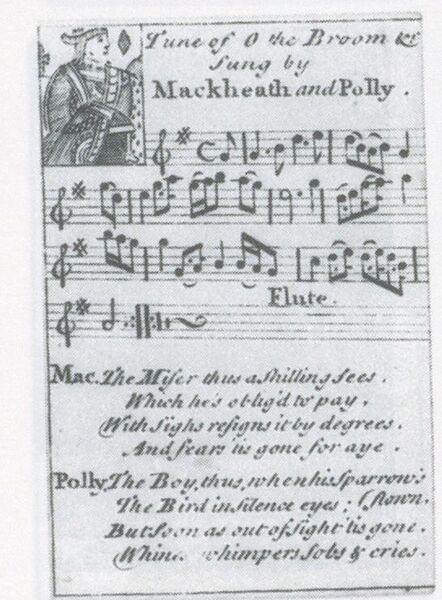 Tune of O the Broom &c
Sung by
Mackheath and Polly.
Flute.
Mac. The Miser thus a shilling sees.
Which he's oblig'd to pay,
With sighs resigns it by degrees.
And fears 'tis gone for aye.
Polly The Boy, thus, when his Sparrow's
The Bird in silence eyes; (flown.
But soon as out of sight 'tis gone.
Whines whimpers sobs & cries.